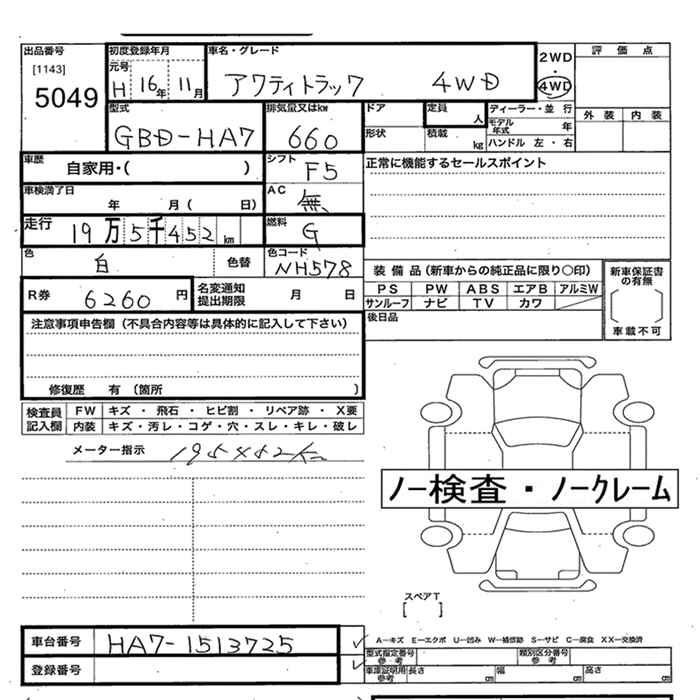 出品番号 初度登録年月 車名・グレード 2WD・4WD 評価点
[1143] 元号
5049 H 16年 11月 アクティトラック 4WD
型式 排気量又はkw ドア 定員 人 ディーラー・並行 外装 内装
GBD-HA7 660 形状 積載 kg モデル年式 年
ハンドル 左・右
車歴 自家用・( ) シフト F5 正常に機能するセールスポイント
車検満了日 年 月( 日) AC 無
走行 19万5千452km 燃料 G
色 白 色替 色コード NH578
装備品(新車からの純正品に限り○印) 新車保証書の有無
R券 6260円 名変通知提出期限 月 日 PS PW ABS エアB アルミW
サンルーフ ナビ TV カワ [ ]
注意事項申告欄(不具合内容等は具体的に記入して下さい) 後日品 車載不可
修復歴 有(箇所 )
検査員記入欄 FW キズ・飛石・ヒビ割・リペア跡・X要
内装 キズ・汚レ・コゲ・穴・スレ・キレ・破レ
メーター指示 195452km
ノー検査・ノークレーム
スペアT
[ ]
車台番号 HA7-1513725 A−キズ E−エクボ U−凹み W−補修跡 S−サビ C−腐食 XX−交換済
登録番号 型式指定番号 参考 類別区分番号 参考
車庫証明用参考 長さ cm 幅 cm 高さ cm